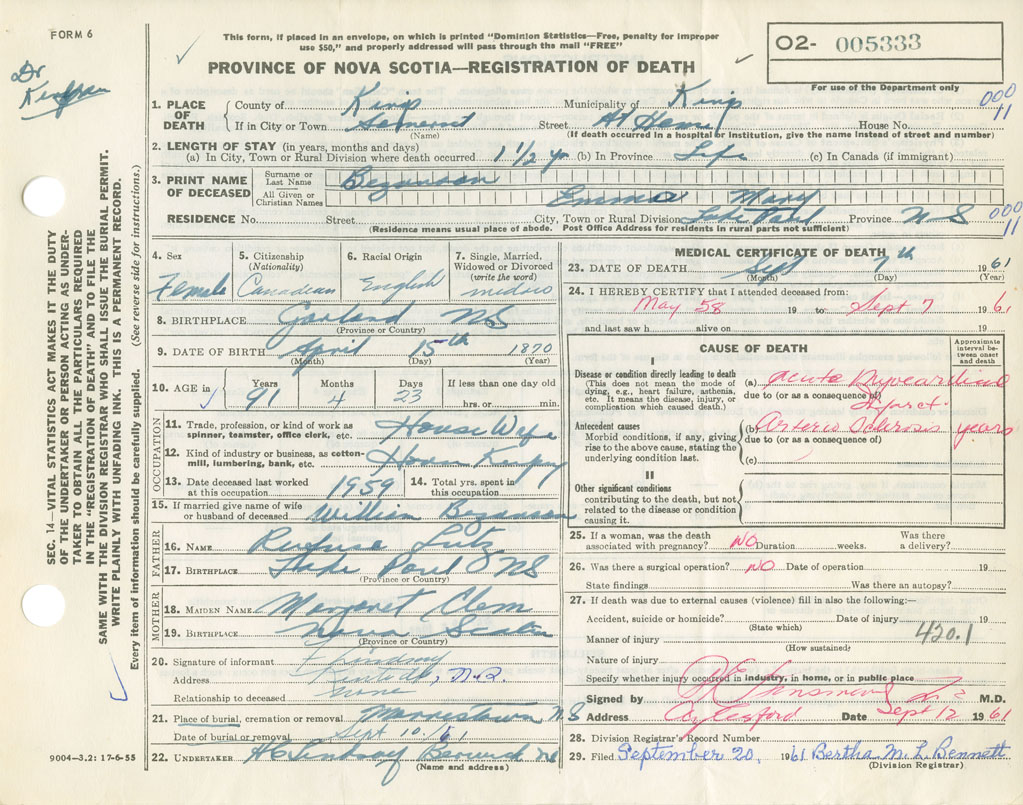 FORM 6
This form, if placed in an envelope, on which is printed "Dominion Statistics—Free, penalty for improper
use $50," and properly addressed will pass through the mail "FREE"
PROVINCE OF NOVA SCOTIA—REGISTRATION OF DEATH
02- 005333
For use of the Department only
Dr
000
11
1. PLACE OF DEATH
County of Kings Municipality of Kings
If in City or Town Somerset Street At Home House No.
(Name) (If death occurred in a hospital or institution, give the name instead of street and number)
2. LENGTH OF STAY (in years, months and days)
(a) In City, Town or Rural Division where death occurred 1 1/2 yr (b) In Province Life (c) In Canada (if immigrant)
3. PRINT NAME OF DECEASED
Surname or Last Name Bezanson
All Given or Christian Names Emma Mary
RESIDENCE No. Street City, Town or Rural Division Lake Paul Province N S
(Residence means usual place of abode. Post Office Address for residents in rural parts not sufficient)
000
11
4. Sex Female
5. Citizenship (Nationality) Canadian
6. Racial Origin English
7. Single, Married, Widowed or Divorced (write the word) widow
8. BIRTHPLACE Garland NS
(Province or Country)
9. DATE OF BIRTH April 15th 1870
(Month) (Day) (Year)
10. AGE in Years 91 Months 4 Days 23 If less than one day old hrs. or min.
OCCUPATION
11. Trade, profession, or kind of work as spinner, teamster, office clerk, etc. House Wife
12. Kind of industry or business, as cotton-mill, lumbering, bank, etc. House Keeping
13. Date deceased last worked at this occupation 1959
14. Total yrs. spent in this occupation
15. If married give name of wife or husband of deceased William Bezanson
FATHER
16. NAME Lutz
17. BIRTHPLACE Lake Paul NS
(Province or Country)
MOTHER
18. MAIDEN NAME Margaret Clem
19. BIRTHPLACE Nova Scotia
(Province or Country)
20. Signature of informant
Address N.S.
Relationship to deceased none
21. Place of burial, cremation or removal Morristown NS
Date of burial or removal Sept 10/61
22. UNDERTAKER Berwick NS
(Name and address)
9004-3,2: 17-6-55
MEDICAL CERTIFICATE OF DEATH
23. DATE OF DEATH Sept 7th 1961
(Month) (Day) (Year)
24. I HEREBY CERTIFY that I attended deceased from:
May 58 19 to: Sept 7 1961
and last saw h alive on 19
CAUSE OF DEATH
Approximate interval between onset and death
I
Disease or condition directly leading to death
(This does not mean the mode of dying, e.g., heart failure, asthenia, etc. It means the disease, injury, or complication which caused death.)
(a) Acute Myocardial
due to (or as a consequence of)
Infarct.
Antecedent causes
Morbid conditions, if any, giving rise to the above cause, stating the underlying condition last.
(b) Arterio Sclerosis years
due to (or as a consequence of)
(c)
II
Other significant conditions
contributing to the death, but not related to the disease or condition causing it.
25. If a woman, was the death associated with pregnancy? NO Duration weeks. Was there a delivery?
26. Was there a surgical operation? NO Date of operation 19
State findings Was there an autopsy?
27. If death was due to external causes (violence) fill in also the following:—
Accident, suicide or homicide? Date of injury 19
(State which)
420.1
Manner of injury
(How sustained)
Nature of injury
Specify whether injury occurred in industry, in home, or in public place
Signed by M.D.
Address Aylesford Date Sept 12 1961
28. Division Registrar's Record Number
29. Filed September 20, 1961 Bertha M. L. Bennett
(Division Registrar)
SEC. 14—VITAL STATISTICS ACT MAKES IT THE DUTY
OF THE UNDERTAKER OR PERSON ACTING AS UNDER-
TAKER TO OBTAIN ALL THE PARTICULARS REQUIRED
IN THE "REGISTRATION OF DEATH" AND TO FILE THE
SAME WITH THE DIVISION REGISTRAR WHO SHALL ISSUE THE BURIAL PERMIT.
WRITE PLAINLY WITH UNFADING INK. THIS IS A PERMANENT RECORD.
Every item of information should be carefully supplied. (See reverse side for instructions.)